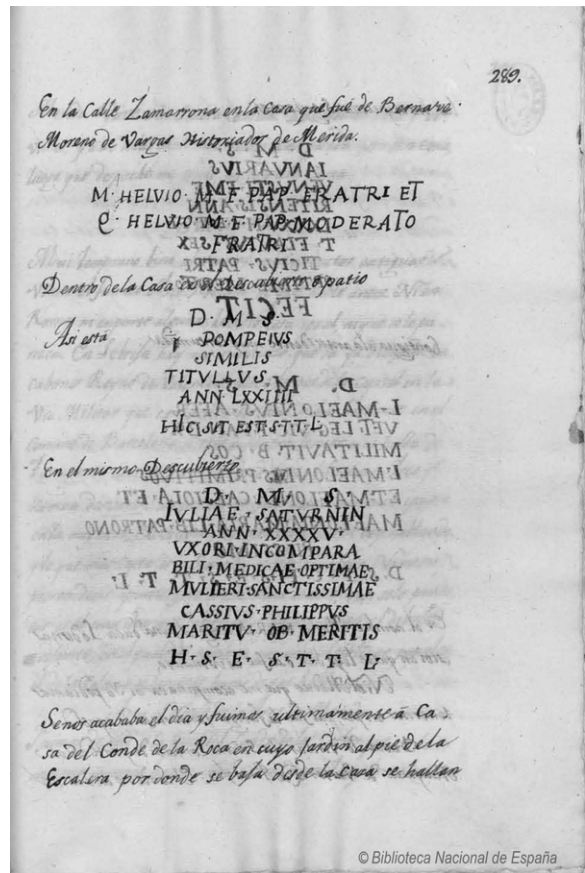 289.
En la Calle Zamarrona en la Casa que fué de Bernave
Moreno de Vargas Historiador de Merida.
M· HELVIO· M· F· PAP· FRATRI ET
HELVIO· M· F· PAP· MODERATO
FRATRI
Dentro de la Casa Descubierto patio
D· M· S·
Asi está
POMPEIUS
SIMILIS
TITVLLVS
ANN LXXIIII
HIC SIT· EST· S·T·T·L·
En el mismo Descubierto
D· M· S·
IVLIAE· SATVRNIN
ANN· XXXXV·
VXORI· INCOMPARA
BILI· MEDICAE· OPTIMAE
MVLIERI· SANCTISSIMAE
CASSIVS· PHILIPPVS
MARITV· OB· MERITIS
H· S· E· S· T· T· L·
Se nos acababa el dia y fuimos ultimamente â Ca
sa del Conde de la Roca en cuyo Jardin al pie de la
Escalera por donde se baja desde la Casa se hallan
© Biblioteca Nacional de España